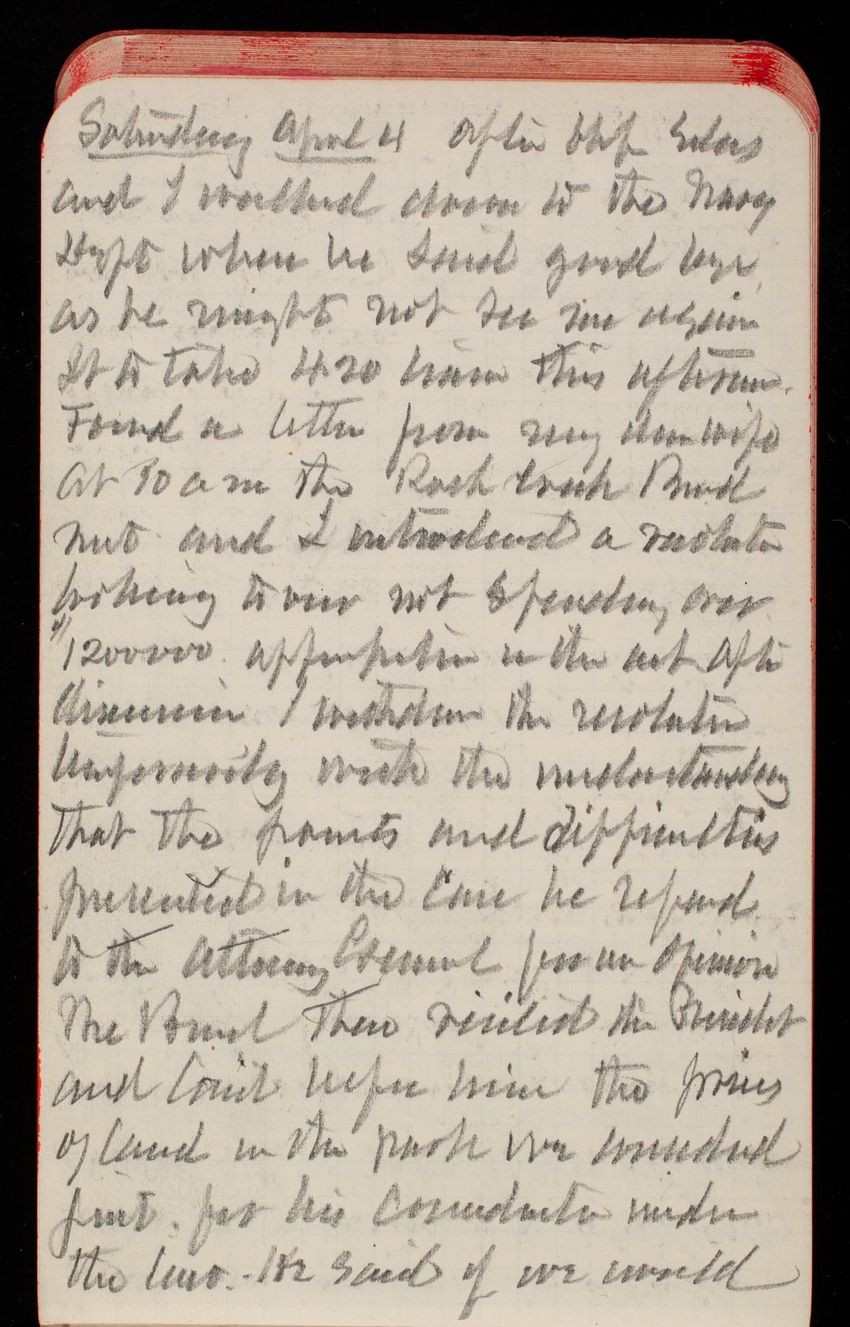 Saturday April 4 after bkf Silas
and I walked down to the Navy
Dept when he said good bye
as he might not see me again
to take 4.20 train this afternoon.
Found a letter from my dear wife
At 10 a m the Rock Creek Board
met and I introduced a resolution
looking to our not spending over
$1200000 appropriation in the act After
discussion I withdrew the resolution
temporarily with the understanding
that the points and difficulties
presented in the case be referred
to the Attorney General for an opinion
The Board then visited the President
and laid before him the prices
of land in the park we considered
just. for his consideration under
the law. - He said if we would